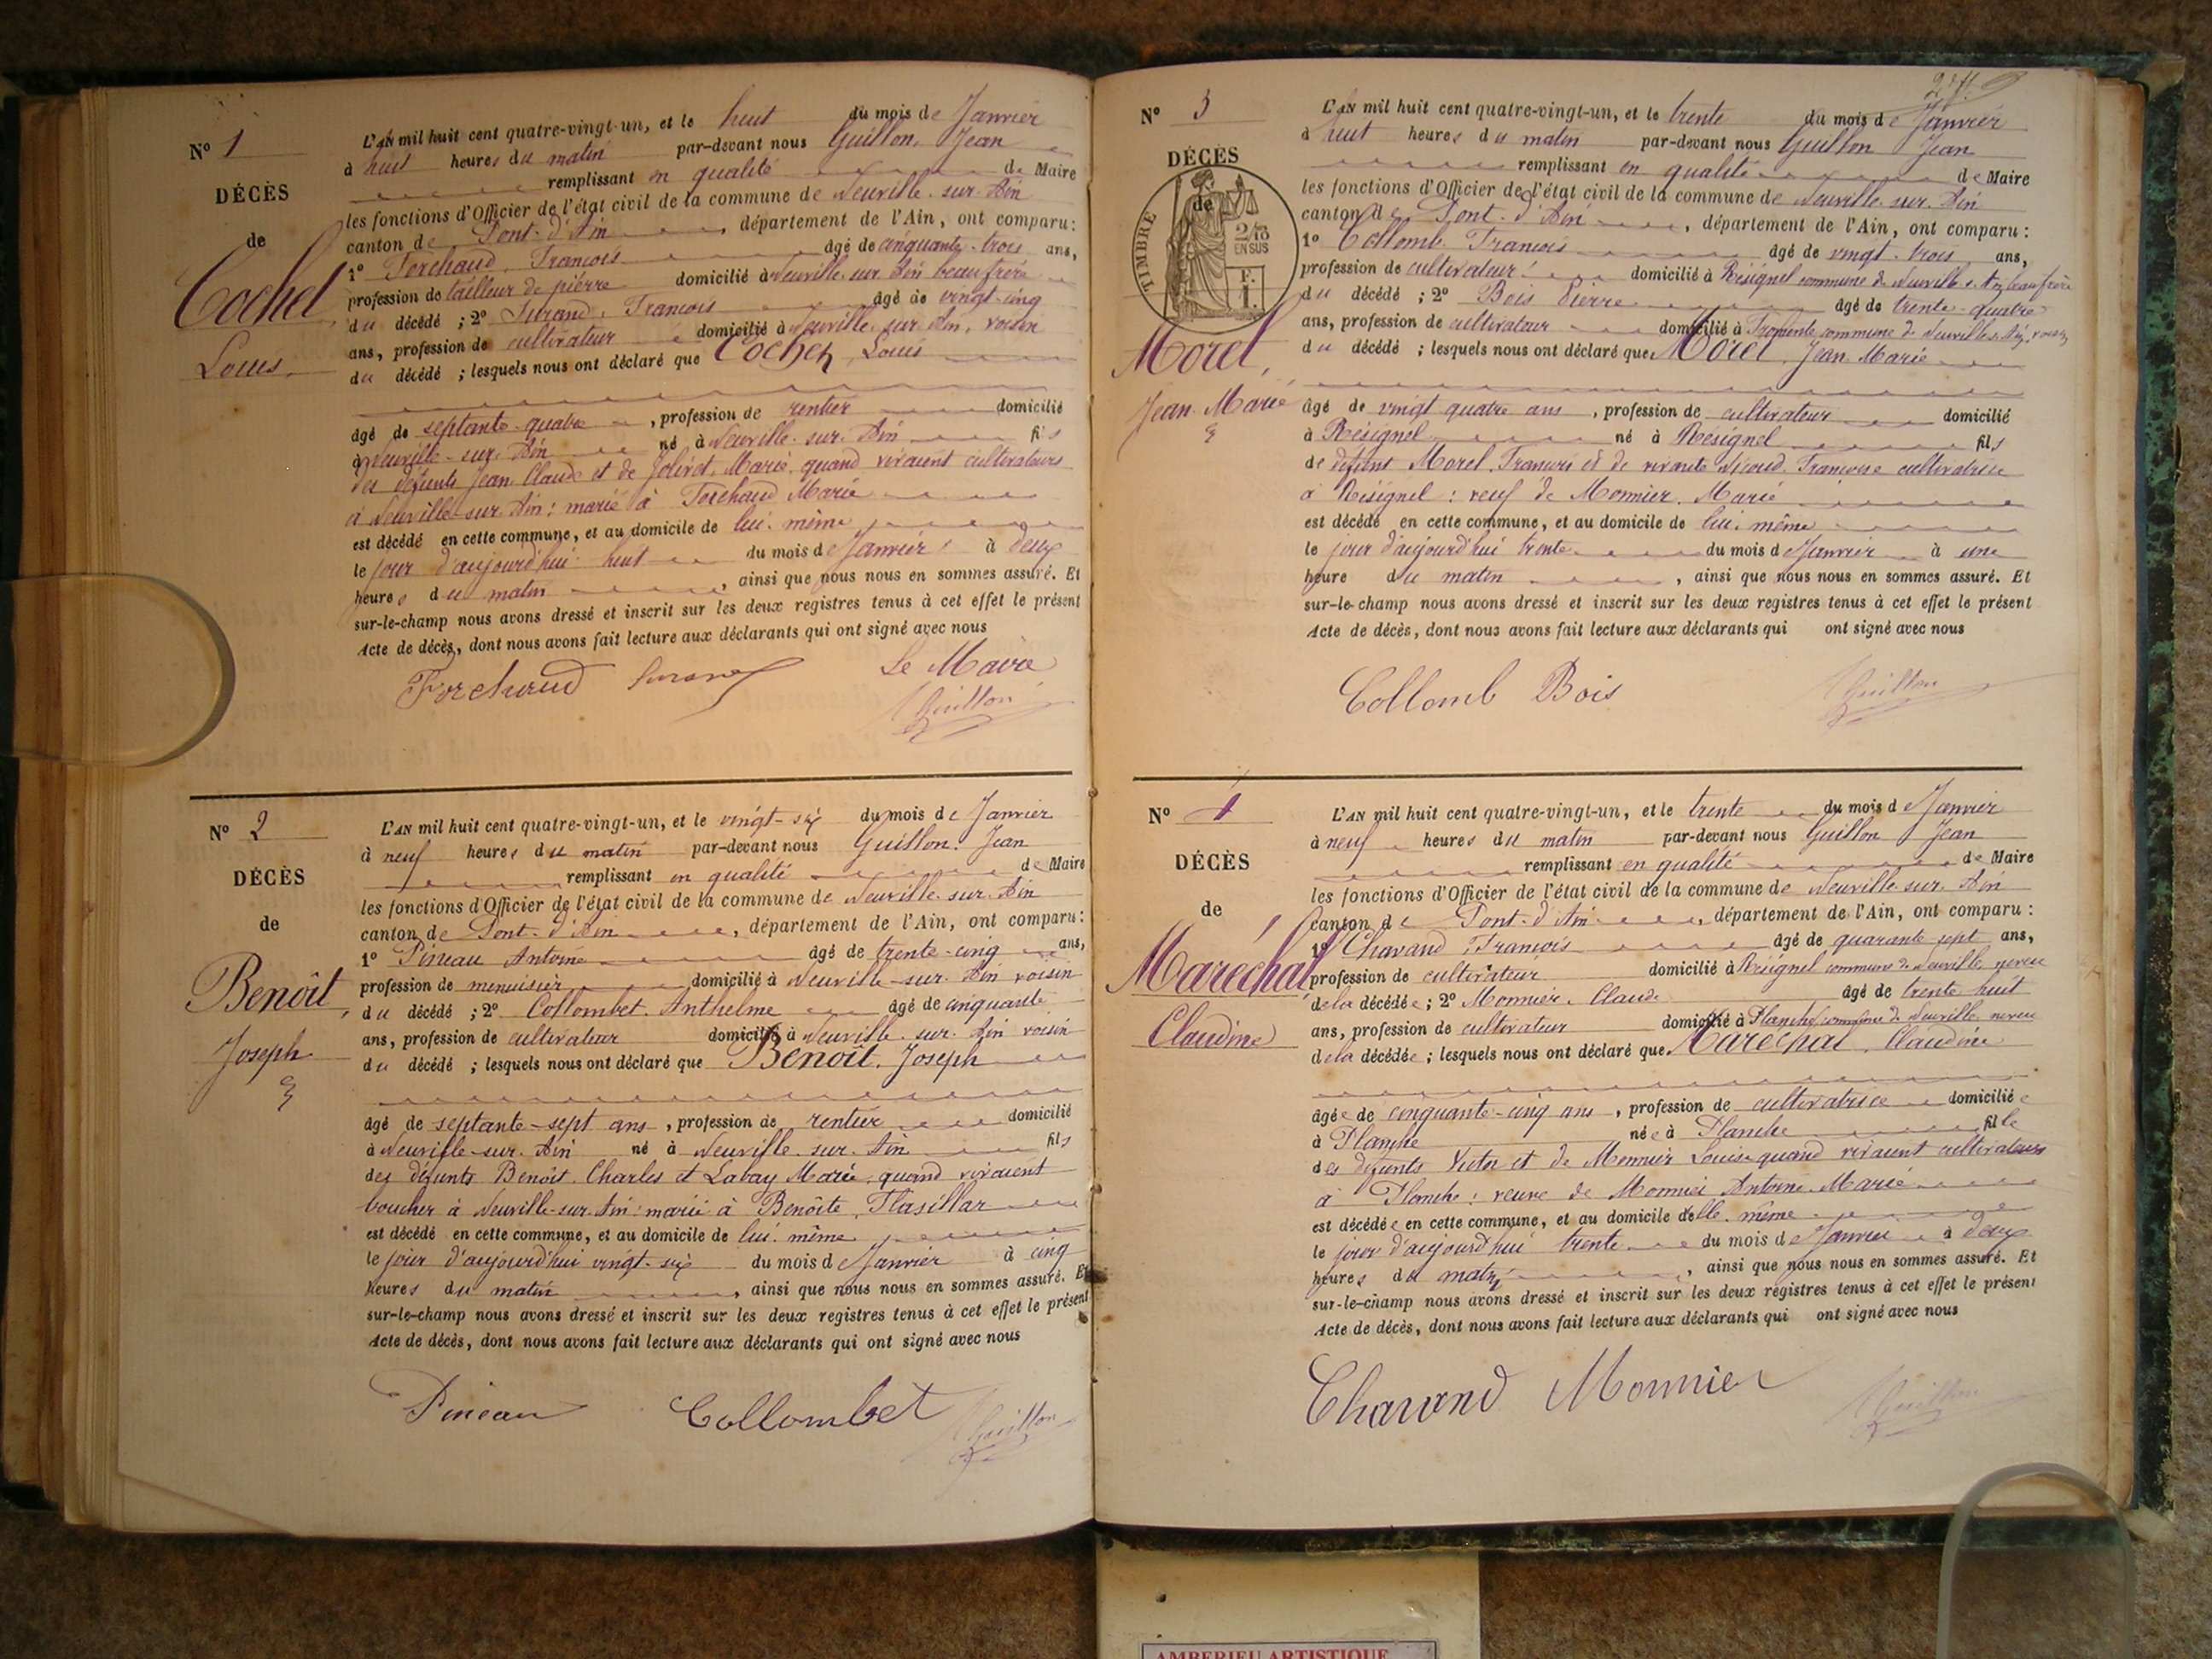 N° 1
DÉCÈS
de
Cochet
Louis
L'AN mil huit cent quatre-vingt-un, et le huit du mois de Janvier
à huit heures du matin par-devant nous Guillon, Jean
remplissant en qualité de Maire
les fonctions d'Officier de l'état civil de la commune de Neuville-sur-Ain
canton de Pont-d'Ain, département de l'Ain, ont comparu :
1° Ferchaud, François âgé de cinquante-trois ans,
profession de tailleur de pierre domicilié à Neuville sur Ain beau frère
du décédé ; 2° Durand, François âgé de vingt-cinq
ans, profession de cultivateur domicilié à Neuville sur Ain, voisin
du décédé ; lesquels nous ont déclaré que Cochet, Louis
âgé de septante-quatre, profession de rentier domicilié
à Neuville-sur-Ain né à Neuville-sur-Ain fils
des défunts Jean Claude et de Marie, quand vivaient cultivateurs
à Neuville-sur-Ain : marié à Ferchaud Marie
est décédé en cette commune, et au domicile de lui-même
le jour d'aujourd'hui huit du mois de Janvier à deux
heures du matin, ainsi que nous nous en sommes assuré. Et
sur-le-champ nous avons dressé et inscrit sur les deux registres tenus à cet effet le présent
Acte de décès, dont nous avons fait lecture aux déclarants qui ont signé avec nous
Le Maire
Guillon
N° 2
DÉCÈS
de
Benoît,
Joseph
L'AN mil huit cent quatre-vingt-un, et le vingt-six du mois de Janvier
à neuf heures du matin par-devant nous Guillon, Jean
remplissant en qualité de Maire
les fonctions d'Officier de l'état civil de la commune de Neuville-sur-Ain
canton de Pont-d'Ain, département de l'Ain, ont comparu :
1° Pineau Antoine âgé de trente-cinq ans,
profession de menuisier domicilié à Neuville-sur-Ain voisin
du décédé ; 2° Collombet, Anthelme âgé de cinquante
ans, profession de cultivateur domicilié à Neuville-sur-Ain voisin
du décédé ; lesquels nous ont déclaré que Benoît, Joseph
âgé de septante-sept ans, profession de rentier domicilié
à Neuville-sur-Ain né à Neuville-sur-Ain fils
des défunts Benoît, Charles et Labay Marie, quand vivaient
boucher à Neuville-sur-Ain : marié à Benoîte,
est décédé en cette commune, et au domicile de lui-même
le jour d'aujourd'hui vingt-six du mois de Janvier à cinq
heures du matin, ainsi que nous nous en sommes assuré. Et
sur-le-champ nous avons dressé et inscrit sur les deux registres tenus à cet effet le présent
Acte de décès, dont nous avons fait lecture aux déclarants qui ont signé avec nous
Pineau Collombet Guillon
N° 3
DÉCÈS
de
TIMBRE
2/10
EN SUS
F.
1.
Morel,
Jean-Marie
L'AN mil huit cent quatre-vingt-un, et le trente du mois de Janvier
à huit heures du matin par-devant nous Guillon Jean
remplissant en qualité de Maire
les fonctions d'Officier de l'état civil de la commune de Neuville-sur-Ain
canton de Pont-d'Ain, département de l'Ain, ont comparu :
1° Collomb François âgé de vingt-trois ans,
profession de cultivateur domicilié à Résignel commune de Neuville s. Ain beau frère
du décédé ; 2° Bois Pierre âgé de trente-quatre
ans, profession de cultivateur domicilié à Fromente commune de Neuville s. Ain, voisin
du décédé ; lesquels nous ont déclaré que Morel, Jean-Marie
âgé de vingt quatre ans, profession de cultivateur domicilié
à Résignel né à Résignel fils
de défunt Morel, François et de vivante Françoise cultivatrice
à Résignel : veuf de Monnier, Marie
est décédé en cette commune, et au domicile de lui-même
le jour d'aujourd'hui trente du mois de Janvier à une
heure du matin, ainsi que nous nous en sommes assuré. Et
sur-le-champ nous avons dressé et inscrit sur les deux registres tenus à cet effet le présent
Acte de décès, dont nous avons fait lecture aux déclarants qui ont signé avec nous
Collomb Bois Guillon
N° 4
DÉCÈS
de
Maréchal,
Claudine
L'AN mil huit cent quatre-vingt-un, et le trente du mois de Janvier
à neuf heures du matin par-devant nous Guillon Jean
remplissant en qualité de Maire
les fonctions d'Officier de l'état civil de la commune de Neuville-sur-Ain
canton de Pont-d'Ain, département de l'Ain, ont comparu :
1° Chavand, François âgé de quarante-sept ans,
profession de cultivateur domicilié à Résignel commune de Neuville neveu
de la décédée ; 2° Monnier, Claude âgé de trente huit
ans, profession de cultivateur domicilié à Planche, commune de Neuville neveu
de la décédée ; lesquels nous ont déclaré que Maréchal, Claudine
âgée de cinquante-cinq ans, profession de cultivatrice domiciliée
à Planche née à Planche fille
des défunts Victor et de Monnier Louise quand vivaient cultivateurs
à Planche : veuve de Monnier Antoine-Marie
est décédée en cette commune, et au domicile d'elle-même
le jour d'aujourd'hui trente du mois de Janvier à deux
heures du matin, ainsi que nous nous en sommes assuré. Et
sur-le-champ nous avons dressé et inscrit sur les deux registres tenus à cet effet le présent
Acte de décès, dont nous avons fait lecture aux déclarants qui ont signé avec nous
Chavand Monnier Guillon
AMBERIEU ARTISTIQUE